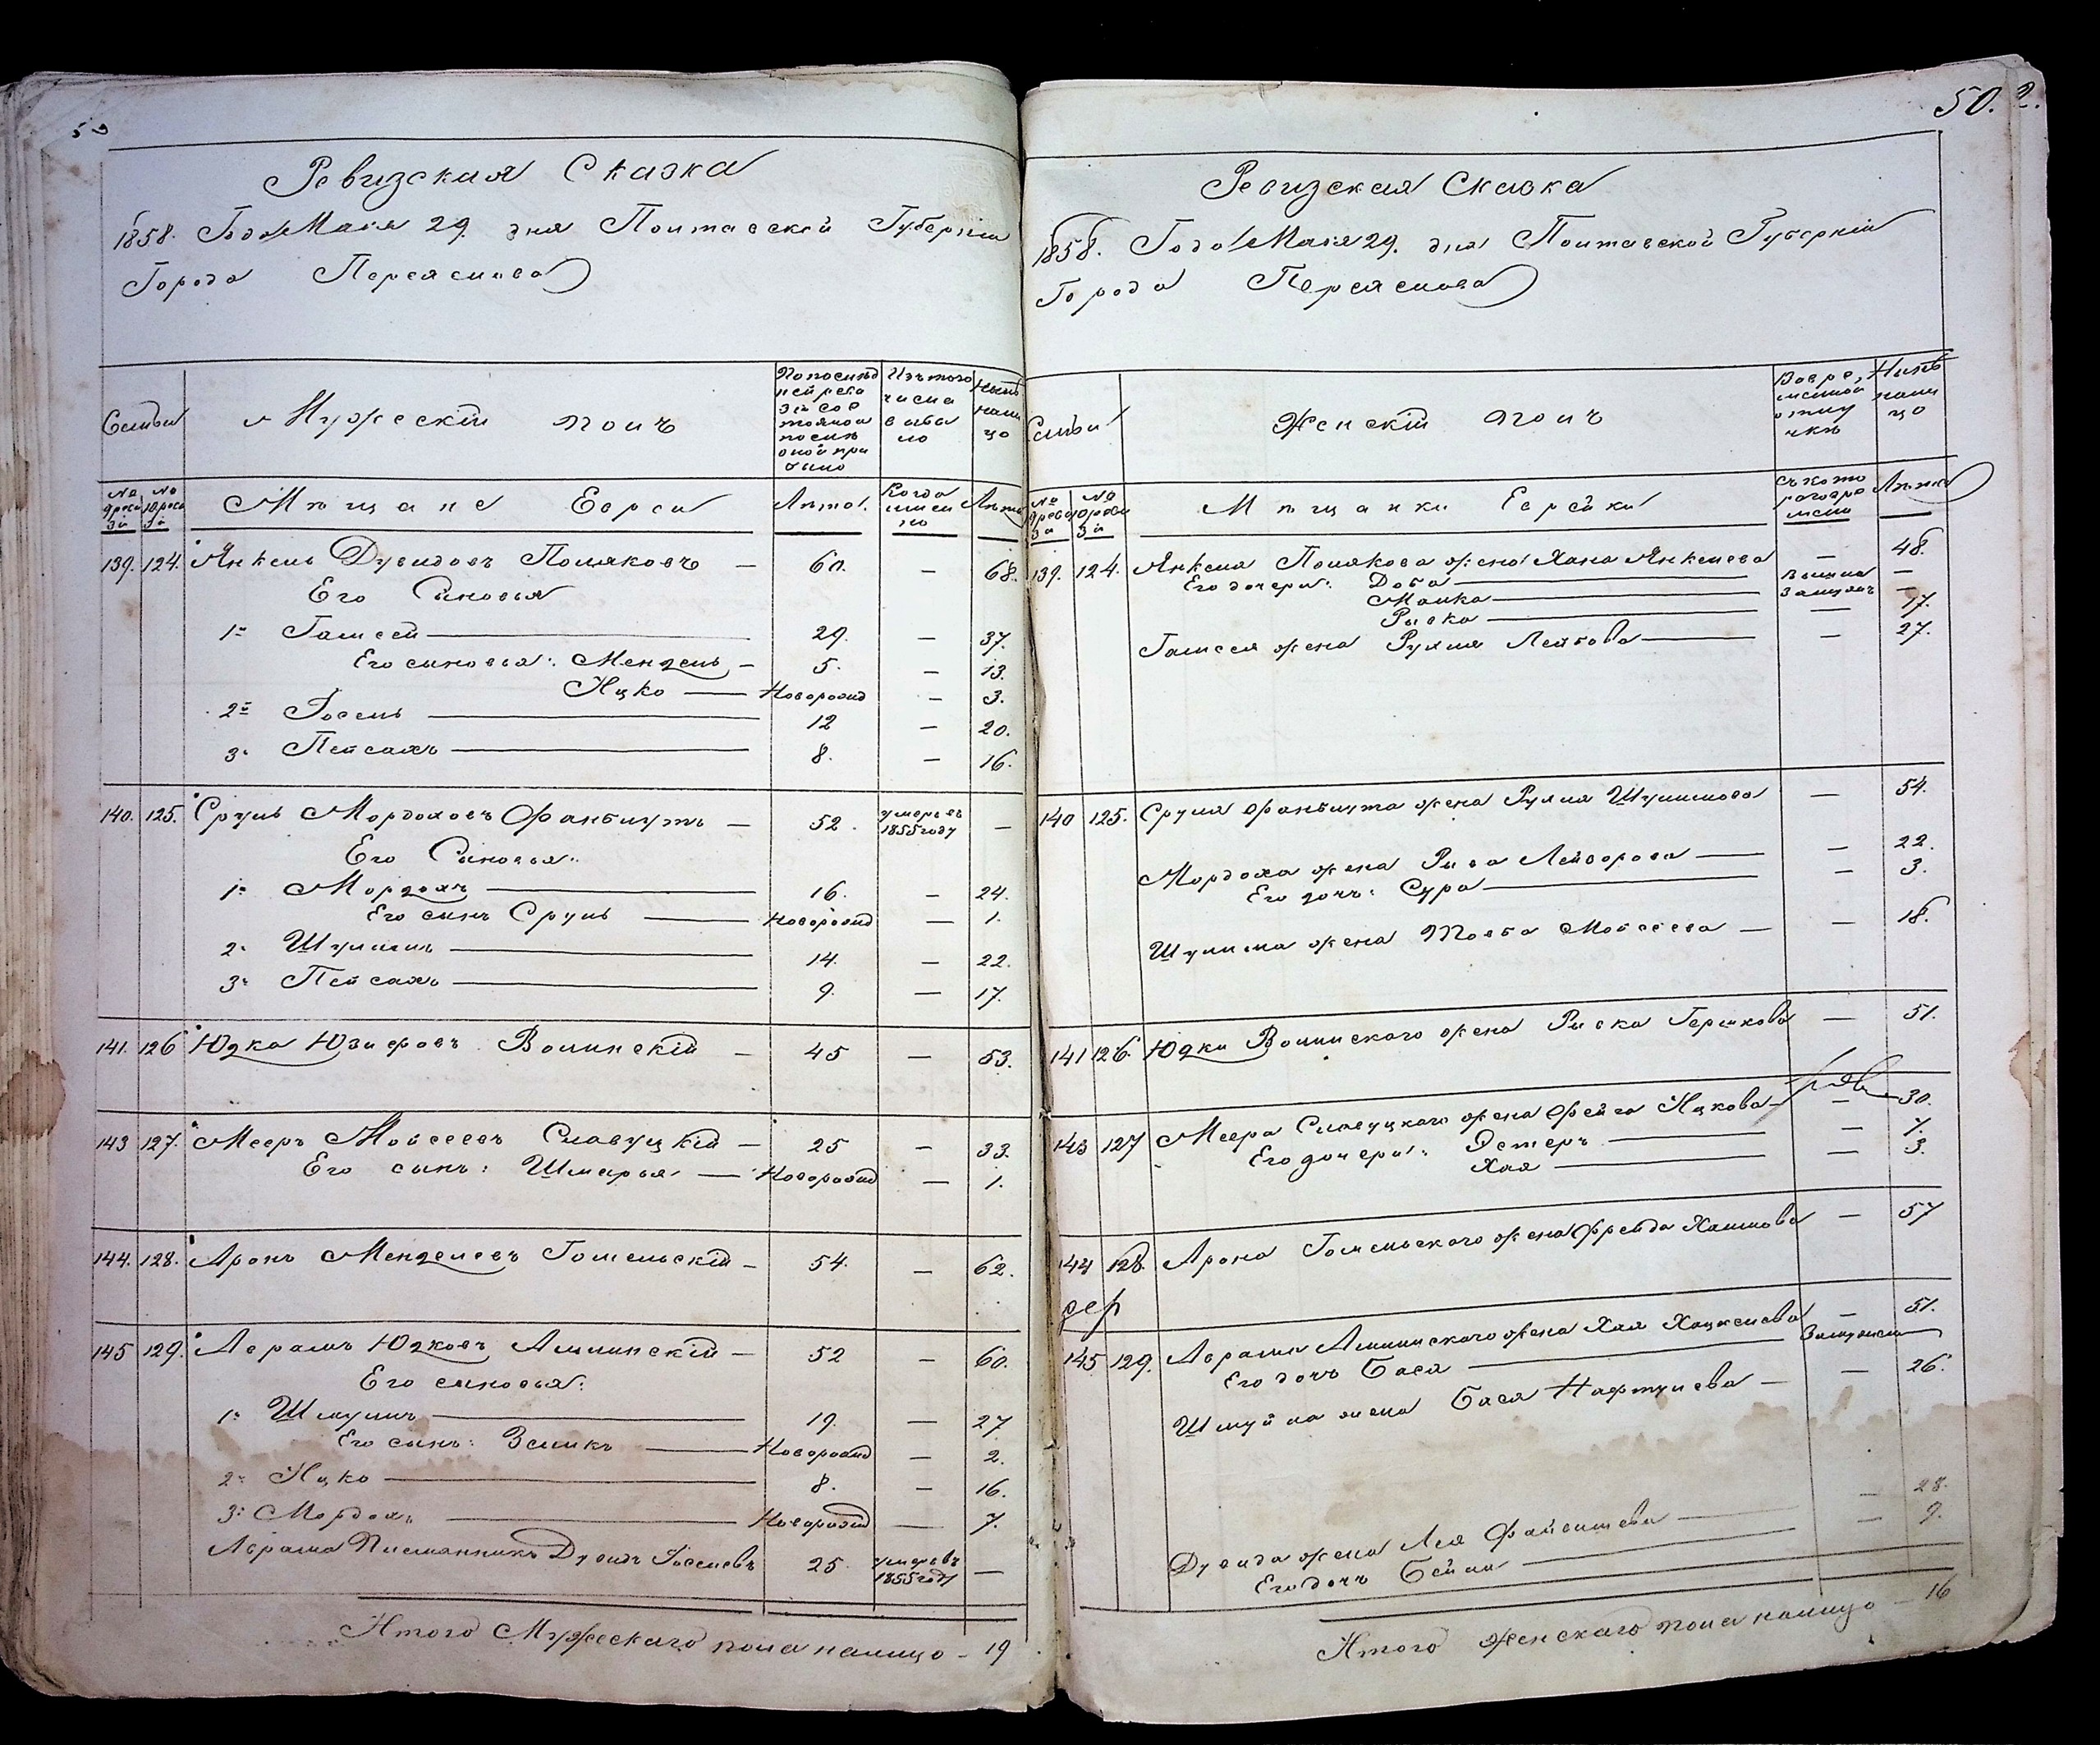 50
Ревизская Сказка
1858. Года Мая 29. дня Полтавской Губерніи
Города Переяслова
Семьи
Мужескій полъ
По послѣд
ней реви
зіи сос
тояло и
послѣ
оной при
было
Изъ того
числа
выбы
ло
Нынѣ
нали
цо
№ 9 реви зіи
№ 10 реви зіи
Мѣщане Евреи
Лѣта.
Когда
имен
но
Лѣта
139. 124. Янкель Дувидовъ Поляковъ — 60. — 68.
Его Сыновья
1й Гамшей 29. — 37.
Его сыновья: Мендель — 5. — 13.
Ицко — Новорожд — 3.
2й Іосель 12 — 20.
3й Пейсахъ 8. — 16.
140. 125. Сруль Мордоховъ Фанбштъ — 52. умеръ въ 1855 году —
Его Сыновья:
1й Мордохъ 16. — 24.
Его сынъ Сруль Новорожд — 1.
2й Шулимъ 14. — 22.
3й Пейсахъ 9. — 17.
141. 126 Юдка Юзифовъ Волинскій — 45 — 53.
143 127. Мееръ Мовсеевъ Славуцкій — 25 — 33.
Его сынъ: Шмарья — Новорожд — 1.
144. 128. Аронъ Менделевъ Гомельскій — 54. — 62.
145 129. Абрамъ Юдковъ Алминскій — 52 — 60.
Его сыновья:
1й Шмулъ 19. — 27
Его сынъ: Зеликъ Новорожд — 2.
2й Ицко 8. — 16.
3й Мордохъ Новорожд — 7.
Абрама Племянникъ Дувидъ Іоселевъ 25. умеръ въ 1855 году —
Итого Мужескаго пола налицо — 19
50. 2.
Ревизская Сказка
1858. Года Мая 29. дня Полтавской Губерніи
Города Переяслова
Семьи
Женскій полъ
Во вре,
менной
отлу
чкѣ
Нынѣ
нали
цо
№ 9 реви зіи
№ 10 реви зіи
Мѣщанки Еврейки
съ кото
раго вре
мени
Лѣта
139. 124. Янкеля Полякова жена Хана Янкелева — 48.
Его дочери: Доба вышла —
Малка замужъ —
Рывка — 17.
Гамшея жена Рухля Лейбова — 27.
140 125. Сруля Фанбшта жена Рухля Шулимова — 54.
Мордоха жена Рыва Лейзорова — 22.
Его дочь: Сура — 3.
Шулима жена Тоба Мовсеева — 18.
141 126. Юдки Волинского жена Рывка Гершкова — 51.
143 127 Меера Славуцкаго жена Фейга Ицкова — 30.
Его дочери: Эстеръ — 7.
Хая — 3.
144 128. Арона Гомельского жена Фрейда Хаимова — 57
145 129. Абрама Алминского жена Хая Хацкелева — 51.
Его дочь Бася Замужемъ
Шмуйла жена Бася Нафтулева — — 26.
Дувида жена Лея Файвишева — 28.
Его дочь Бейла — 9.
Итого женскаго пола налицо — 16